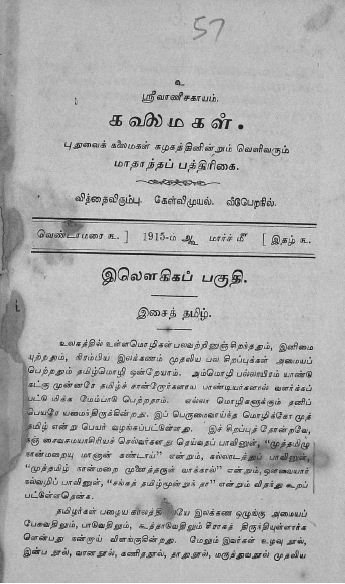 57
உ
ஸ்ரீவாணீசகாயம்.
கலைமகள்.
புதுவைக் கலைமகள் கழகத்தினின்றும் வெளிவரும்
மாதாந்தப் பத்திரிகை.
வித்தைவிரும்பு. கேள்விமுயல்.
வெண்டாமரை ௩. ] 1915-ம் ௵ மார்ச் ௴ [ இதழ் ௩.
இலௌகிகப் பகுதி.
இசைத் தமிழ்.
உலகத்தில் உள்ளமொழிகள் பலவற்றினுஞ்சிறந்ததும், இனிமை
யுற்றதும், நிரம்பிய இலக்கணம் முதலிய பல சிறப்புக்கள் அமையப்
பெற்றதும் தமிழ்மொழி ஒன்றேயாம். அம்மொழி பல்லாயிரம் யாண்டு
கட்கு முன்னரே தமிழ்ச் சான்றோர்களாய பாண்டியர்களால் வளர்க்கப்
பட்டு மிக்க மேம்பாடு பெற்றதாம். எல்லா மொழிகளுக்கும் தனிப்
பெயரே யமைந்திருக்கின்றது. இப் பெருமைவாய்ந்த மொழிக்கோ முத்
தமிழ் என்று பெயர் வழங்கப்பட்டுளது. இச் சிறப்புத் தோன்றவே,
சைவசமயாசிரியச் செல்வர்களது தெய்வதப் பாவினுள், "முத்தமிழு
நான்மறையு மானான் கண்டாய்" என்றும், கல்லாடத்துப் பாவினுள்,
"முத்தமிழ் நான்மறை முளைத்தருள் வாக்கால்" என்றும், ஔவையார்
கல்வழிப் பாவினுள், "சங்கத் தமிழ்மூன்றுந் தா" என்றும் விதந்து கூறப்
பட்டுள்ளதென்க.
தமிழர்கள் பழைய காலத்திலேயே இலக்கண ஒழுங்கு அமையப்
பேசுவதிலும், பாடுவதிலும், கூத்தாடுவதிலும் சீராகத் திருந்தியுள்ளார்க
ளென்பது நன்றாய் விளங்குகின்றது. மேலும் இவர்கள் உழவு நூல்,
இன்ப நூல், வானநூல், கணிதநூல், தாதுநூல், மருத்துவநூல் முதலிய